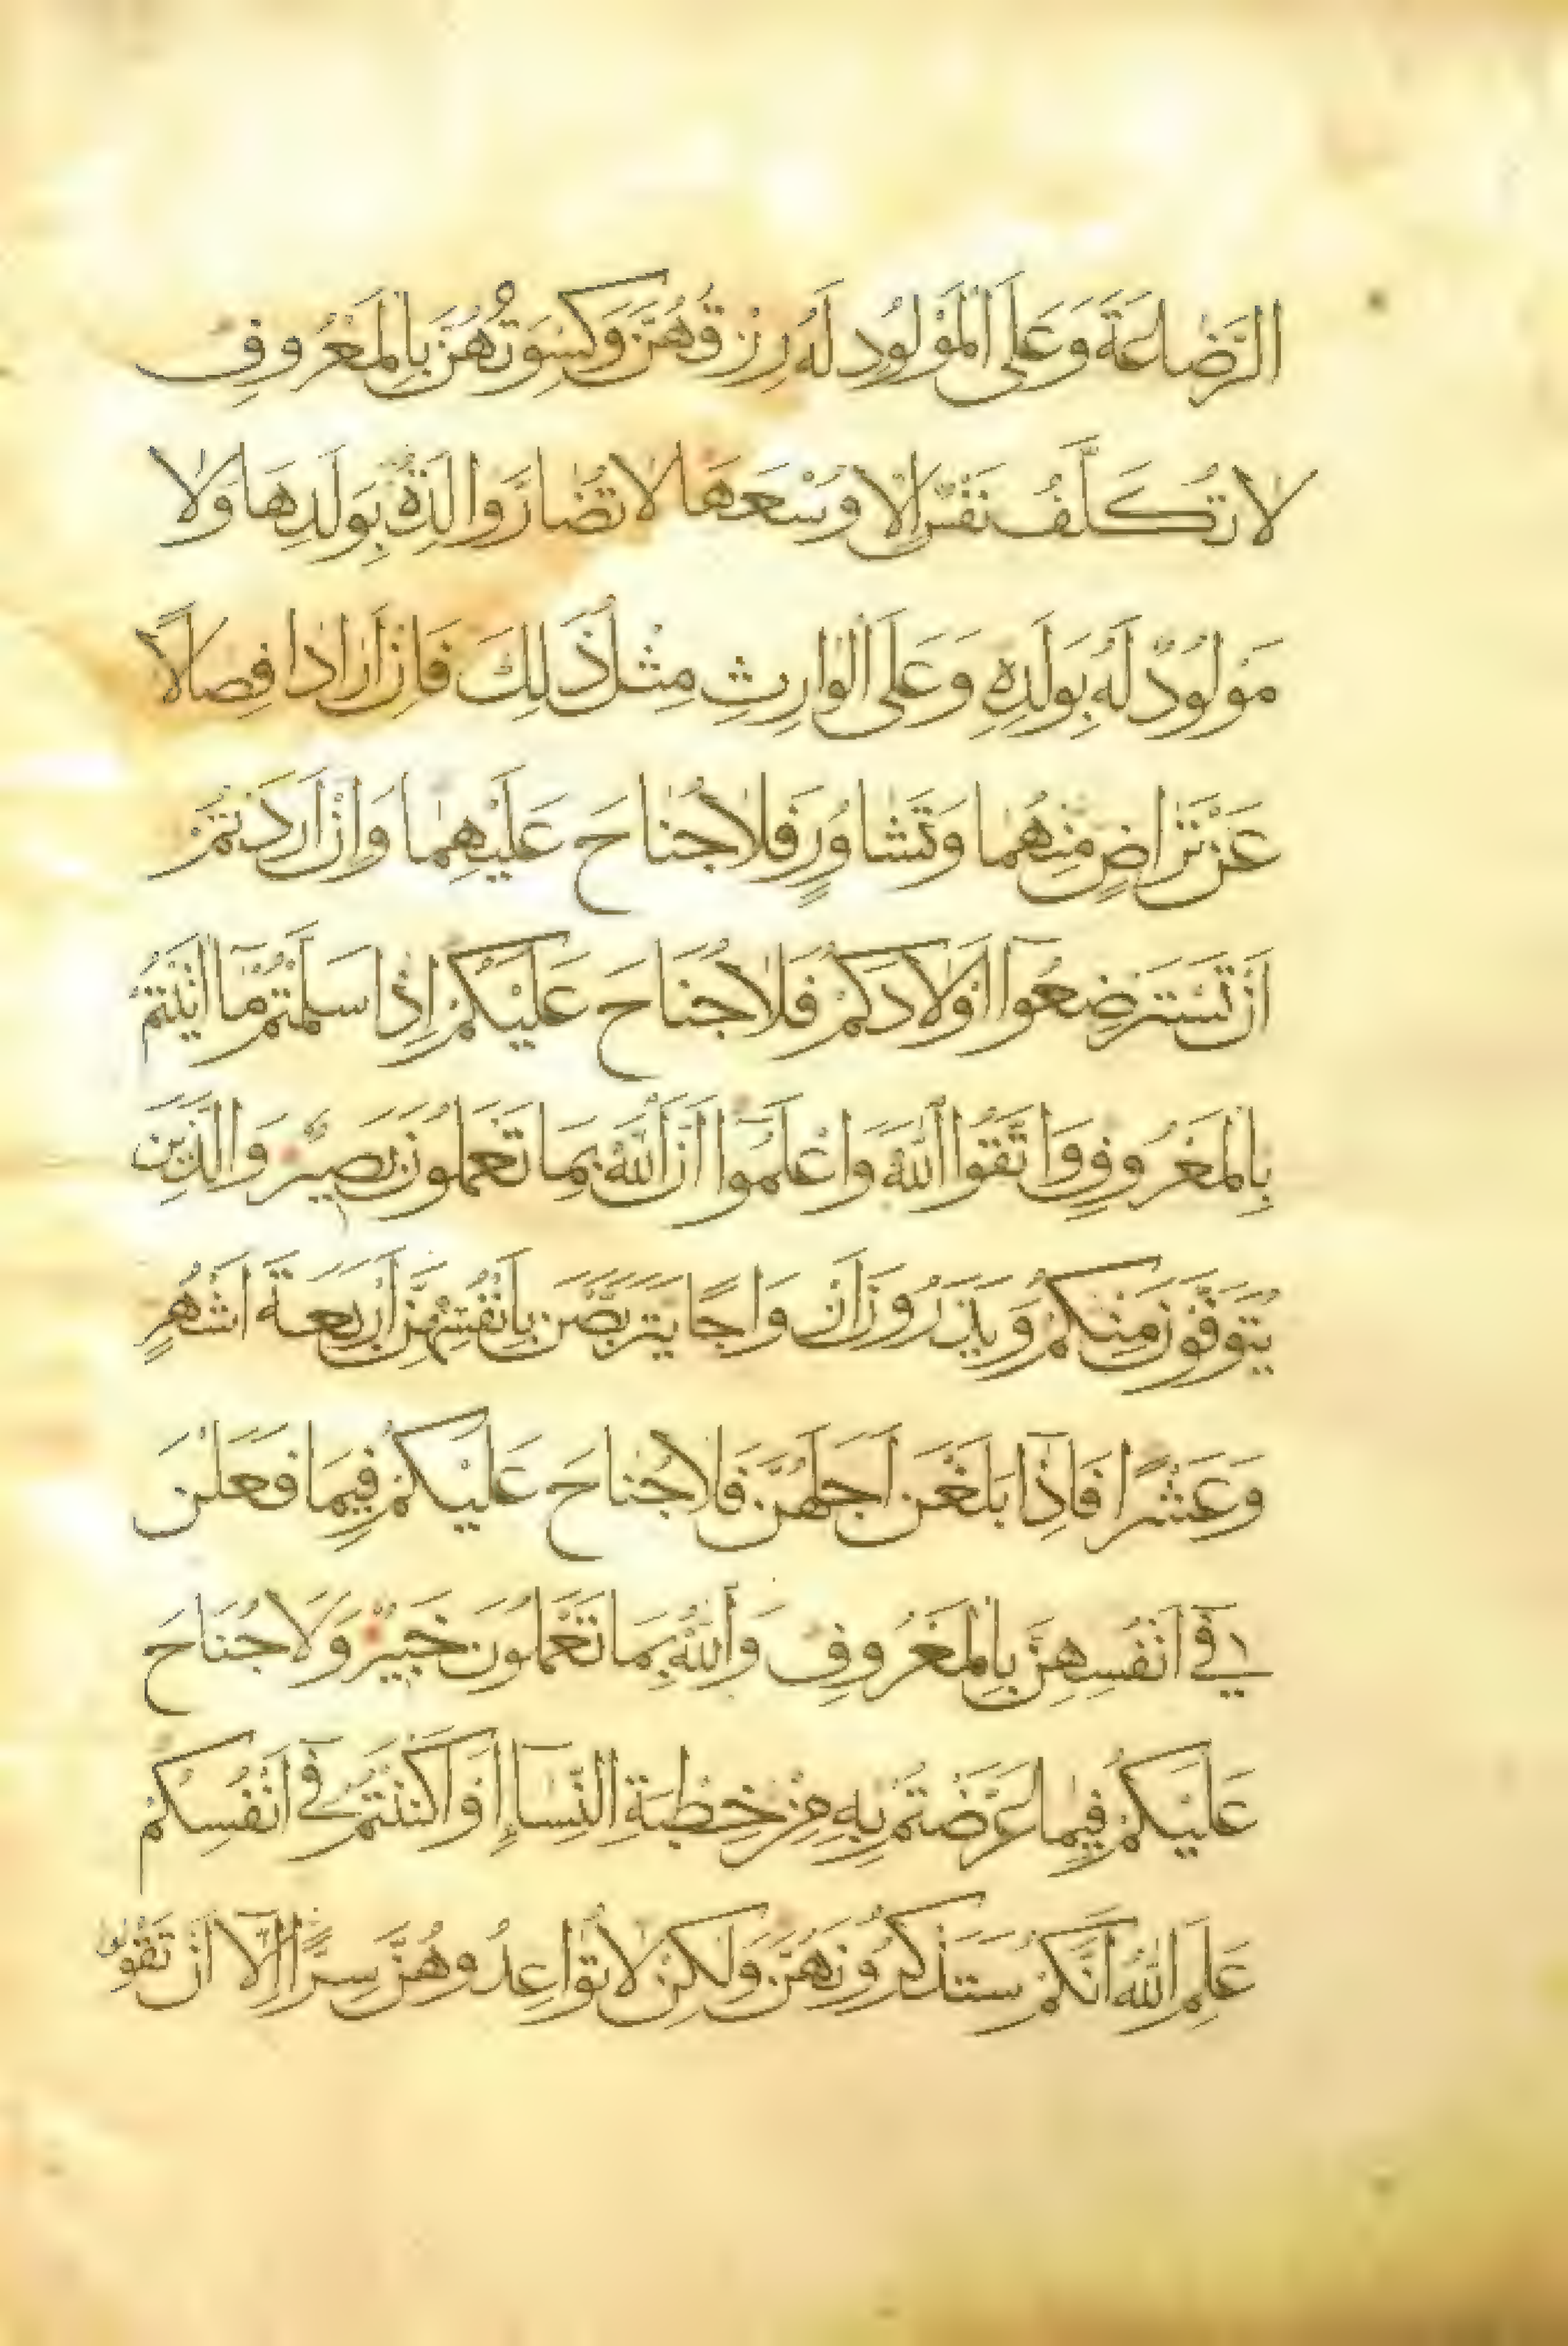 الرَّضَاعَةَ وَعَلَى الْمَوْلُودِ لَهُ رِزْقُهُنَّ وَكِسْوَتُهُنَّ بِالْمَعْرُوفِ
لَا تُكَلَّفُ نَفْسٌ إِلَّا وُسْعَهَا لَا تُضَارَّ وَالِدَةٌ بِوَلَدِهَا وَلَا
مَوْلُودٌ لَهُ بِوَلَدِهِ وَعَلَى الْوَارِثِ مِثْلُ ذَلِكَ فَاِنْ اَرَادَا فِصَالًا
عَنْ تَرَاضٍ مِنْهُمَا وَتَشَاوُرٍ فَلَا جُنَاحَ عَلَيْهِمَا وَاِنْ اَرَدْتُمْ
اَنْ تَسْتَرْضِعُوا اَوْلَادَكُمْ فَلَا جُنَاحَ عَلَيْكُمْ اِذَا سَلَّمْتُمْ مَا اٰتَيْتُمْ
بِالْمَعْرُوفِ وَاتَّقُوا اللّٰهَ وَاعْلَمُوا اَنَّ اللّٰهَ بِمَا تَعْمَلُونَ بَصِيرٌ وَالَّذِينَ
يُتَوَفَّوْنَ مِنْكُمْ وَيَذَرُونَ اَزْوَاجًا يَتَرَبَّصْنَ بِاَنْفُسِهِنَّ اَرْبَعَةَ اَشْهُرٍ
وَعَشْرًا فَاِذَا بَلَغْنَ اَجَلَهُنَّ فَلَا جُنَاحَ عَلَيْكُمْ فِيمَا فَعَلْنَ
فِي اَنْفُسِهِنَّ بِالْمَعْرُوفِ وَاللّٰهُ بِمَا تَعْمَلُونَ خَبِيرٌ وَلَا جُنَاحَ
عَلَيْكُمْ فِيمَا عَرَّضْتُمْ بِهِ مِنْ خِطْبَةِ النِّسَاءِ اَوْ اَكْنَنْتُمْ فِي اَنْفُسِكُمْ
عَلِمَ اللّٰهُ اَنَّكُمْ سَتَذْكُرُونَهُنَّ وَلَكِنْ لَا تُوَاعِدُوهُنَّ سِرًّا اِلَّا اَنْ تَقُولُوا